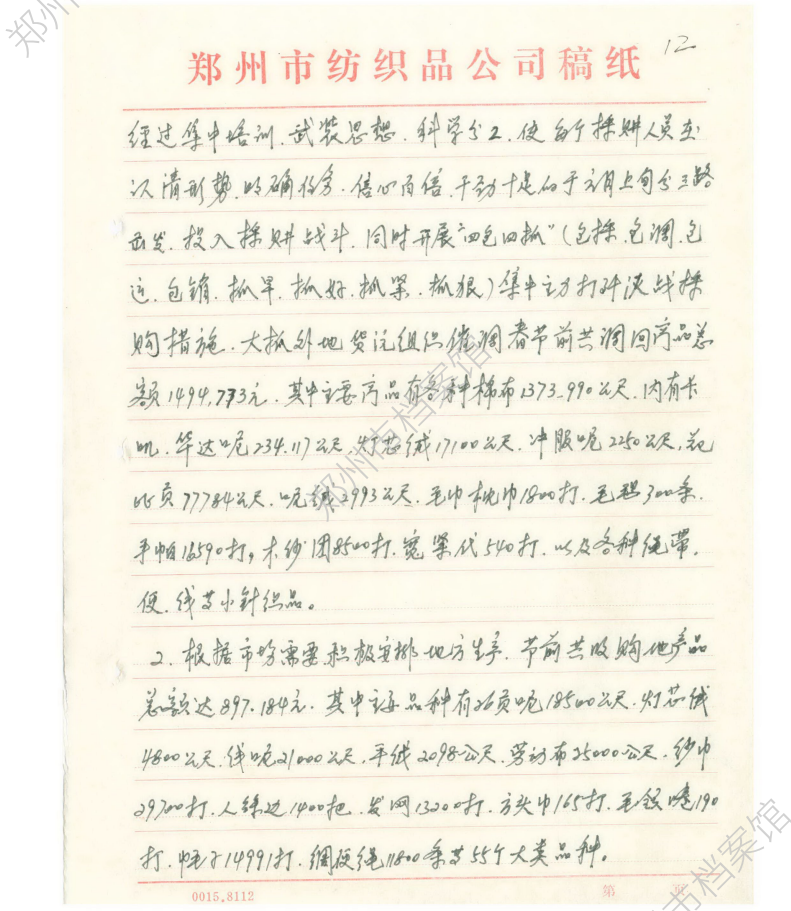 12
郑州市纺织品公司稿纸
经过集中培训、武装思想、科学分工、使每个採购人员在
认清形势、明确任务、信心百倍、干劲十足的于元月上旬分三路
出发、投入採购战斗、同时开展“四包四抓”(包採、包调、包
运、包销、抓早、抓好、抓紧、抓狠)集中主力打歼决战採
购措施、大抓外地货源组织催调春节前共调回商品总
额1494,773元、其中主要商品有各种棉布1373,990公尺、内有卡
叽、华达呢234,117公尺、灯芯绒17100公尺、冲服呢2250公尺、花
贡77784公尺、呢绒2993公尺、毛巾枕巾1800打、毛毯300条、
手帕16590打,木纱团8500打、宽紧代540打、以及各种绳带、
便、线等小针织品。
2、根据市场需要积极安排地方生产、节前共收购地产品
总额达897,184元、其中主要品种有贡呢18500公尺、灯芯绒
4800公尺、线呢21000公尺、平绒2098公尺、劳动布25000公尺、纱巾
29700打、人絲边1400把、发网13200打、方头巾165打、毛线190
打、帽子14991打、绸便绳11800条等55个大类品种。
0015.8112
第 页
郑州市档案馆